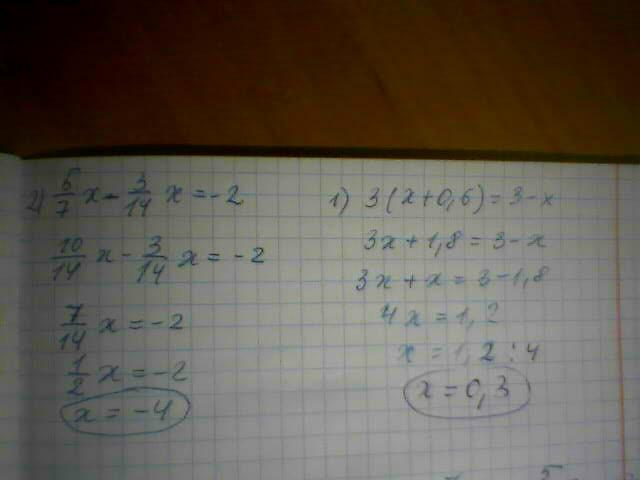 1) 3(x+0,6)=3-x
3x+1,8=3-x
3x+x=3-1,8
4x=1,2
x=1,2:4
x=0,3
2) 5/7 x - 3/14 x = -2
10/14 x - 3/14 x = -2
7/14 x = -2
1/2 x = -2
x = -4